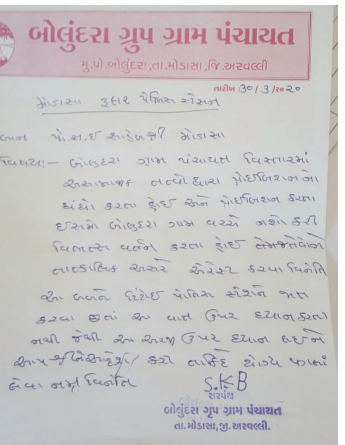 બોલુંદરા ગ્રુપ ગ્રામ પંચાયત
મુ.પો.બોલુંદરા,તા.મોડાસા,જિ.અરવલ્લી
તારીખ 30/3/૨૦૨૦
મોડાસા રૂરલ પોલિસ સ્ટેસન
પી.એસ.ઇ સાહેબશ્રી મોડાસા
વિષય:- બોલુંદરા ગ્રામ પંચાયત વિસ્તારમાં
અસામાજીક તત્વો દ્વારા પ્રોહિબિશનનો
ધંધો કરતા હોઈ અને પ્રોહિબિશન કરતા
ઇસમો બોલુંદરા ગામ વચ્ચે નશો કરી
વર્તન કરતા હોઈ
તાત્કાલિક અસરે એરેસ્ટ કરવા વિનંતિ
આ બાબતે ટિંટોઈ પોલિસ સ્ટેશને જાણ
કરવા છતાં આ વાત ઉપર ધ્યાન કરતા
નથી જેથી આ અરજી ઉપર ધ્યાન લઇને
આપ શ્રી કરી તાકિદે યોગ્ય પગલાં
લેવા નમ્ર વિનંતિ
S.KB
સરપંચ
બોલુંદરા ગૃપ ગ્રામ પંચાયત
તા.મોડાસા,જી.અરવલ્લી.